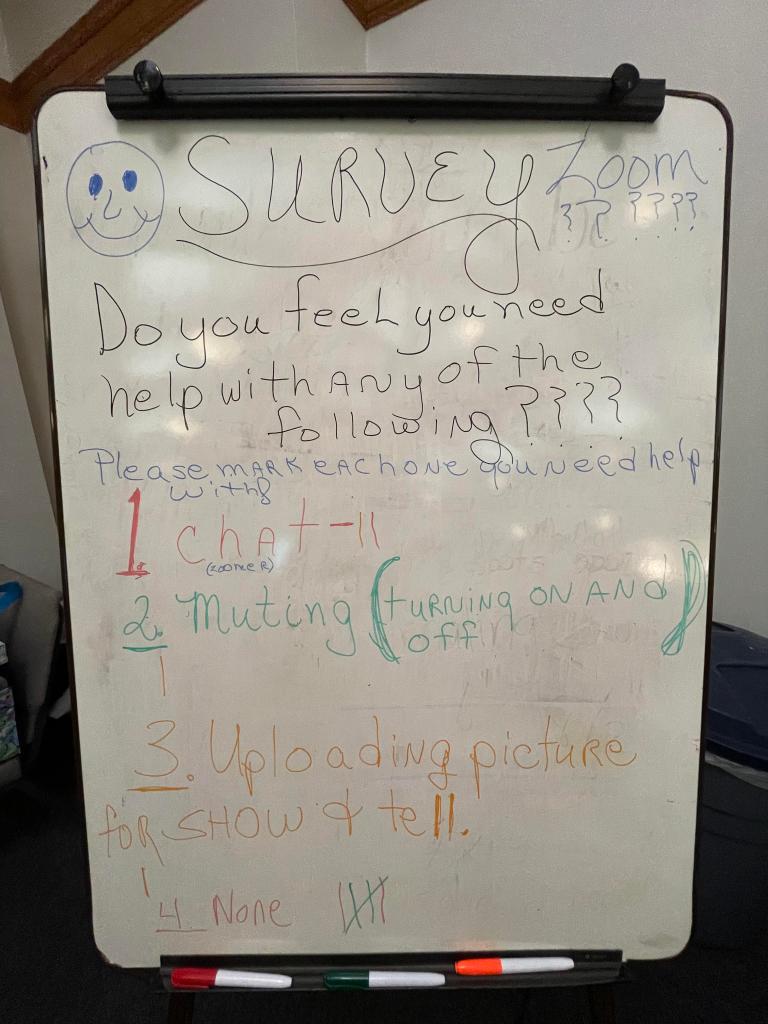 SURVEY Zoom
?? ????
Do you feel you need
help with ANy of the
following ????
Please mARK EACh ONE you NEEd help
with
1. ChAt - II
(ZOOMER)
2. Muting (tURNING ON ANd
off)
I
3. Uploading picture
foR SHOW & tell.
I
4. None